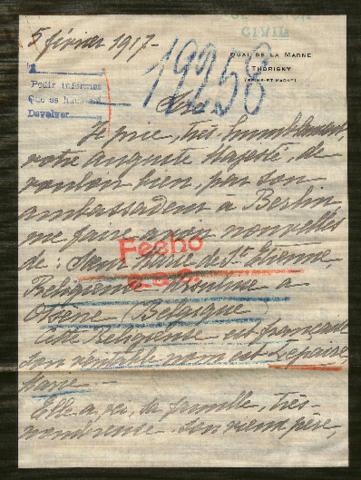 CIVIL
5 février 1917-
QUAI DE LA MARNE
THORIGNY
(SEINE-ET-MARNE)
19258
Pedir informes
Que se
Devolver
Sire
Je prie, très humblement,
votre auguste Majesté, de
vouloir bien, par son
ambassadeur a Berlin
me faire avoir nouvelles
de: de St Etienne,
Fecho
Religieuse a
(Belgique)
cette Religieuse est française
son veritable nom est Lepaire,
Marie -
Elle a, ici, sa famille, très-
nombreuse. Son vieux père,